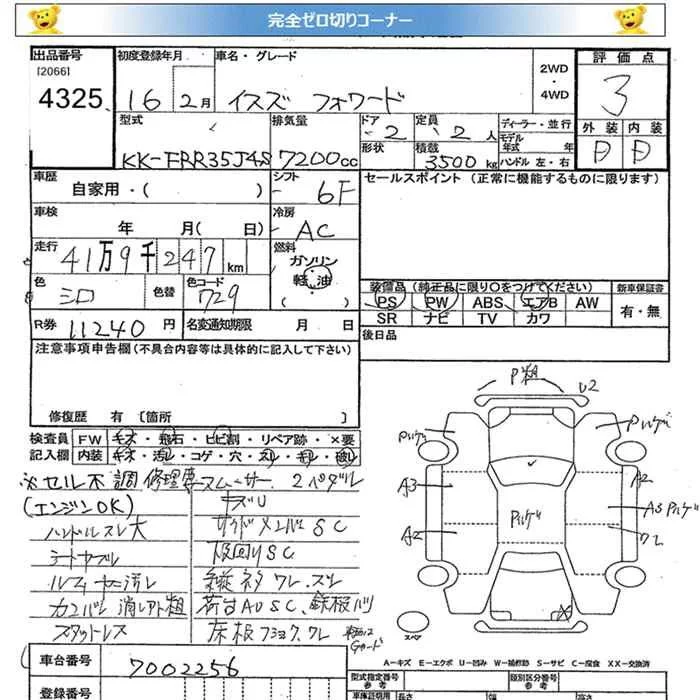 完全ゼロ切りコーナー
出品番号 初度登録年月 車名・グレード 2WD ・ 4WD 評価点
[2066]
4325 16 2月 イスズ フォワード 3
型式 排気量 ドア 定員 ディーラー・並行 外装 内装
KK-FRR35J4S 7200cc 2 2人 モデル年式 年
形状 積載 3500kg ハンドル 左・右 D D
車歴 シフト セールスポイント (正常に機能するものに限ります)
自家用・( ) 6F
車検 冷房
年 月( 日) AC
走行 41万9千247km 燃料 ガソリン 軽油 ( )
色 シロ 色替 色コード 729
装備品 (純正品に限り○をつけてください) 新車保証書
PS PW ABS エアB AW 有・無
SR ナビ TV カワ
R券 11240円 名変通知期限 月 日 後日品
注意事項申告欄(不具合内容等は具体的に記入して下さい)
修復歴 有 [箇所 ]
検査員 FW キズ・飛石・ヒビ割・リペア跡・×要
記入欄 内装 キズ・汚レ・コゲ・穴・スレ・キレ・破レ
※セル不調 修理要 スムーサー 2ペダル
(エンジンOK) キズU
ハンドルスレ大 サイドメンバSC
シートヤブレ 下回りSC
縦ネタワレ.スレ
荷台AUSC、鉄板ハリ
スタットレス 床板フショク.ワレ
P粗 U2
A3 A2
A2 ワレ
スペア
A-キズ E-エクボ U-凹み W-補修跡 S-サビ C-腐食 XX-交換済
車台番号 7002256
登録番号
型式指定番号 参考 類別区分番号 参考
車体証明用 長さ 幅 高さ